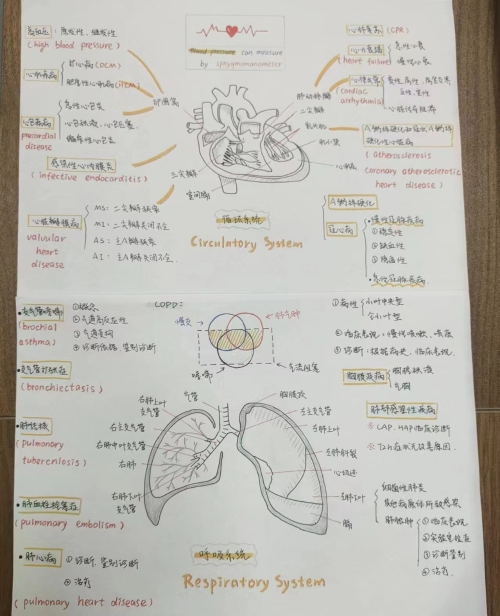 高血压：原发性、继发性
(high blood pressure)
心肌病
扩心病(DCM)
肥厚性心肌病(HCM)
心包疾病
pericardial
disease
急性心包炎
心包积液、心包压塞
缩窄性心包炎
感染性心内膜炎
(infective endocarditis)
心脏瓣膜病
valvular
heart
disease
MS: 二尖瓣狭窄
MI: 二尖瓣关闭不全
AS: 主A瓣狭窄
AI: 主A瓣关闭不全
Blood pressure can measure
by sphygmomanometer
肺动脉瓣
二尖瓣
三尖瓣
室间隔
循环系统
Circulatory System
心肺复苏 (CPR)
心力衰竭
heart failure
急性心衰
慢性心衰
心律失常
(cardiac
arrhythmia)
(atherosclerosis
coronary atherosclerotic
heart disease)
A粥样硬化
冠心病
• 慢性冠脉疾病
①稳定性
②缺血性
③隐匿性
• 急性冠脉疾病
• 支气管哮喘
(brochial
asthma)
①概念
②气道高反应性
③气道重构
④诊断依据，鉴别诊断
• 支气管扩张症
(bronchiectasis)
• 肺结核
(pulmonary
tubercnlosis)
• 肺血栓栓塞症
(pulmonary embolism)
• 肺心病
①诊断，鉴别诊断
②治疗
(pulmonary heart disease)
COPD:
慢支
肺气肿
哮喘
气流阻塞
气管
胸膜顶
右肺上叶
支气管
右主支气管
右肺中叶支气管
右肺
右肺下叶
支气管
左主支气管
左肺上叶
左肺斜裂
心切迹
左肺下叶
膈
呼吸系统
Respiratory System
①病理
小叶中央型
全小叶型
②临床表现：慢性咳嗽、咳痰
③诊断：接触病史、临床表现
胸膜疾病
胸腔积液
气胸
肺部感染性疾病
※ CAP、HAP临床诊断
细菌性肺炎
其他病原体所致感染
肺脓肿
①临床表现
②实验室检查
③诊断鉴别
④治疗